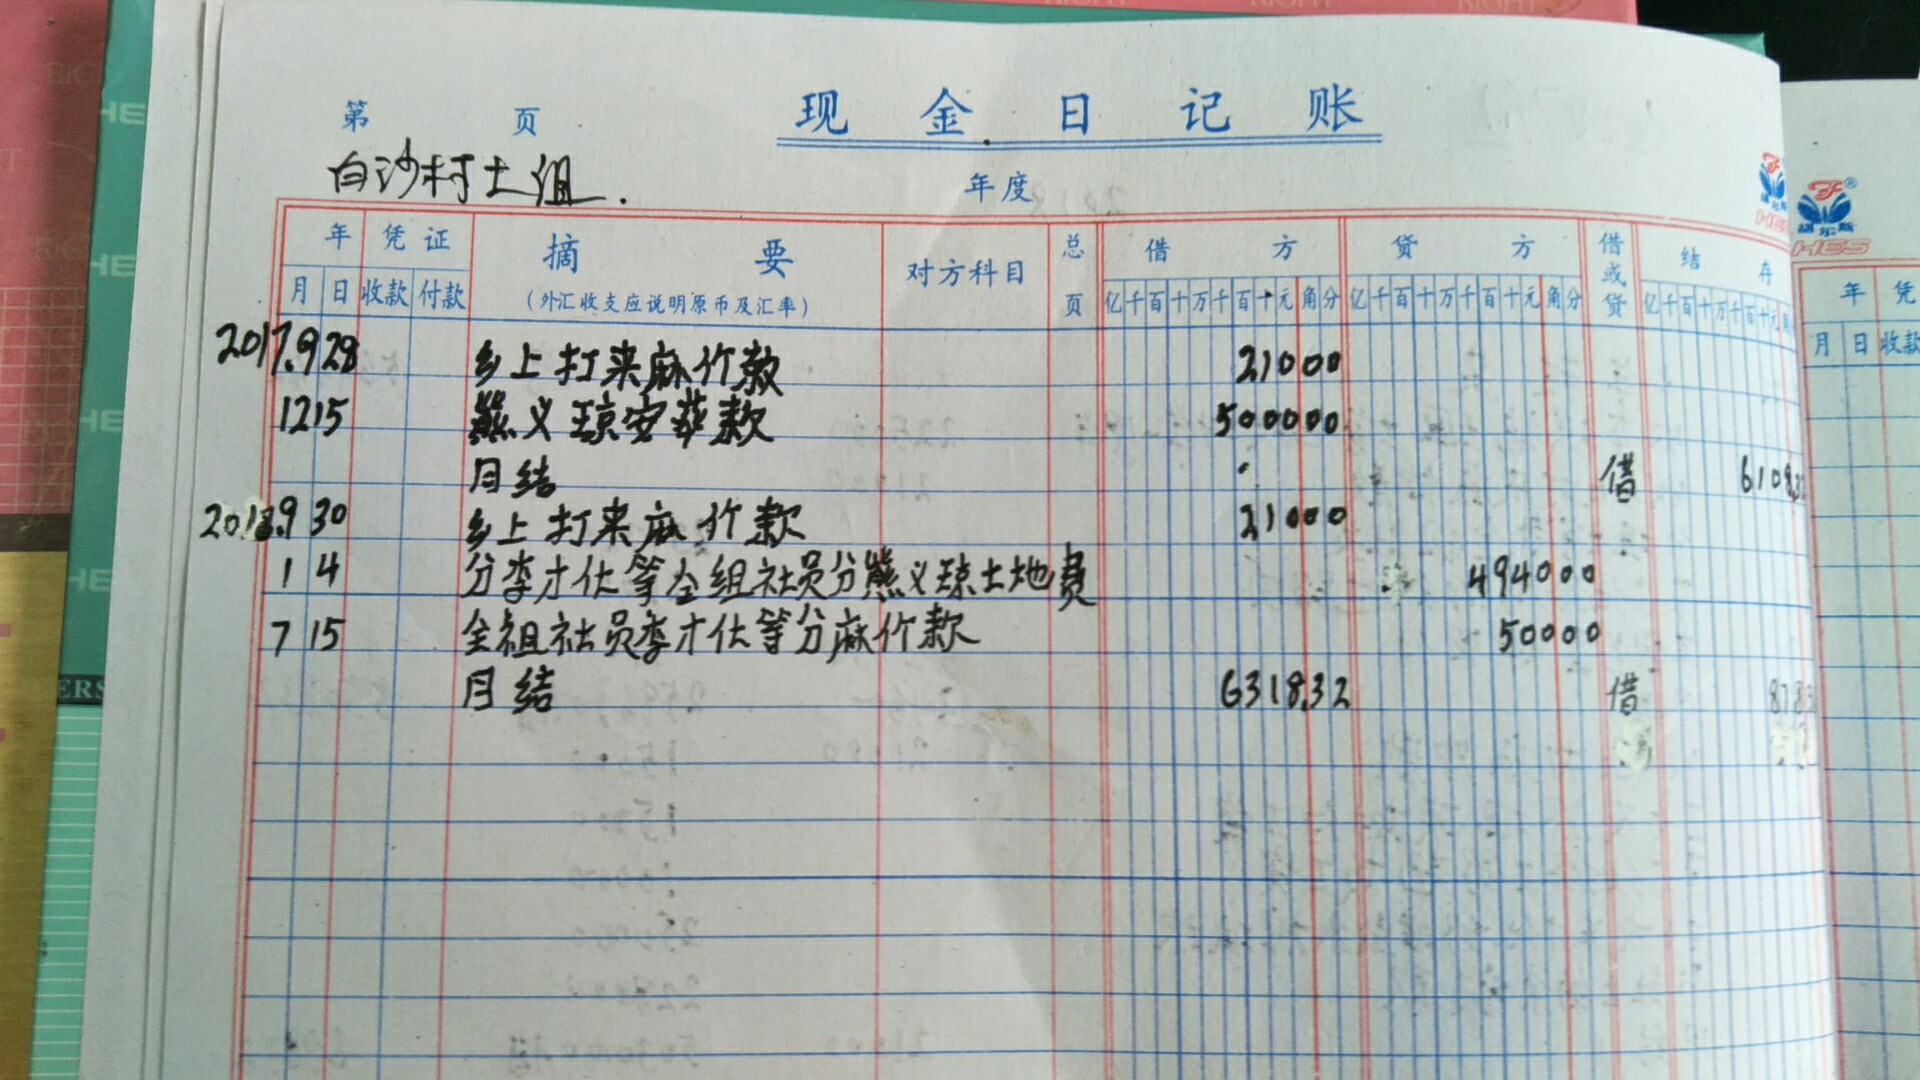 第 页 现金日记账
白沙村土组.
年度
年 凭证 摘要 对方科目 总页 借方 贷方 借或贷 结存
月 日 收款 付款 (外汇收支应说明原币及汇率) 亿千百十万千百十元角分 亿千百十万千百十元角分 亿千百十万千百十元
2017.9 28 乡上打来麻竹款 21000
12 15 熊义琼安葬款 500000
月结 借 6108.3
2018.9 30 乡上打来麻竹款 21000
1 4 分李才仕等全组社员分熊义琼土地费 494000
7 15 全祖社员李才仕等分麻竹款 50000
月结 6318.32 借 878.3
福尔斯
HES
年 凭
月 日 收款